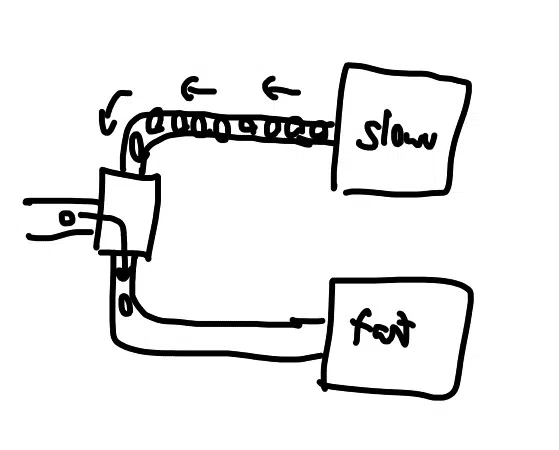 slow
fast